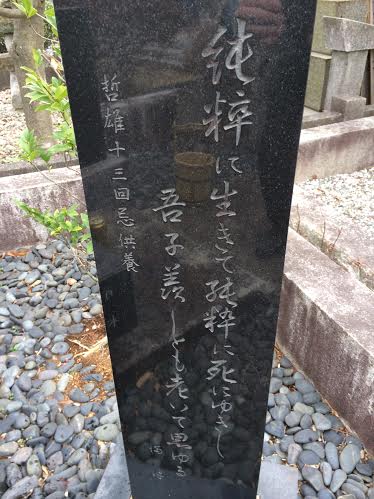 純粋に生きて純粋に死にゆきし
吾子羨しとも老いて思ゆる
哲雄十三回忌供養